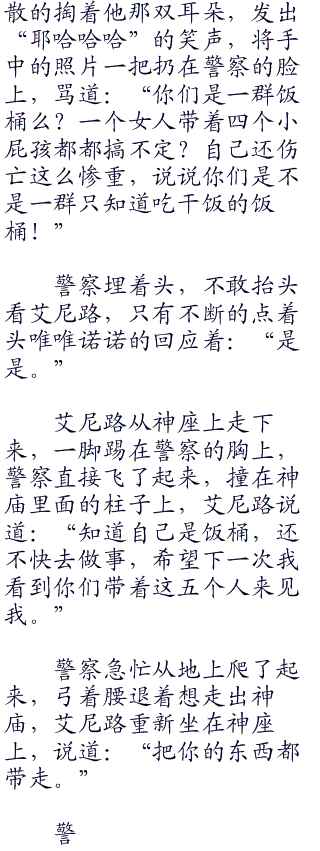 散的掏着他那双耳朵，发出
“耶哈哈哈”的笑声，将手
中的照片一把扔在警察的脸
上，骂道：“你们是一群饭
桶么？一个女人带着四个小
屁孩都都搞不定？自己还伤
亡这么惨重，说说你们是不
是一群只知道吃干饭的饭
桶！”
警察埋着头，不敢抬头
看艾尼路，只有不断的点着
头唯唯诺诺的回应着：“是
是。”
艾尼路从神座上走下
来，一脚踢在警察的胸上，
警察直接飞了起来，撞在神
庙里面的柱子上，艾尼路说
道：“知道自己是饭桶，还
不快去做事，希望下一次我
看到你们带着这五个人来见
我。”
警察急忙从地上爬了起
来，弓着腰退着想走出神
庙，艾尼路重新坐在神座
上，说道：“把你的东西都
带走。”
警